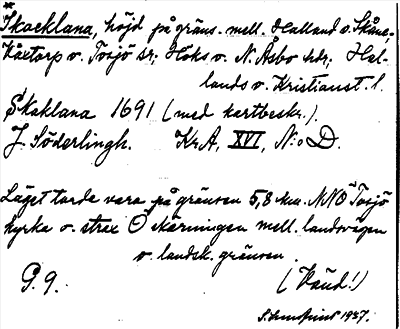 *Skaeklana, höjd på gräns. mell. Halland o. Skåne.
Våxtorp o. Tosjö sn; Höks o. N. Åsbo hdr, Hal-
lands o. Kristianst. l.
Skaklana 1691 (med kartbeskr.).
J. Söderlingh. Kr.A, XVI, N:o D.
Läget torde vara på gränsen 5,8 km. NNÖ Tosjö
kyrka o. strax Ö skärningen mell. landsvägen
o. landsk. gränsen.
G. 9. (Vänd!)
1937.